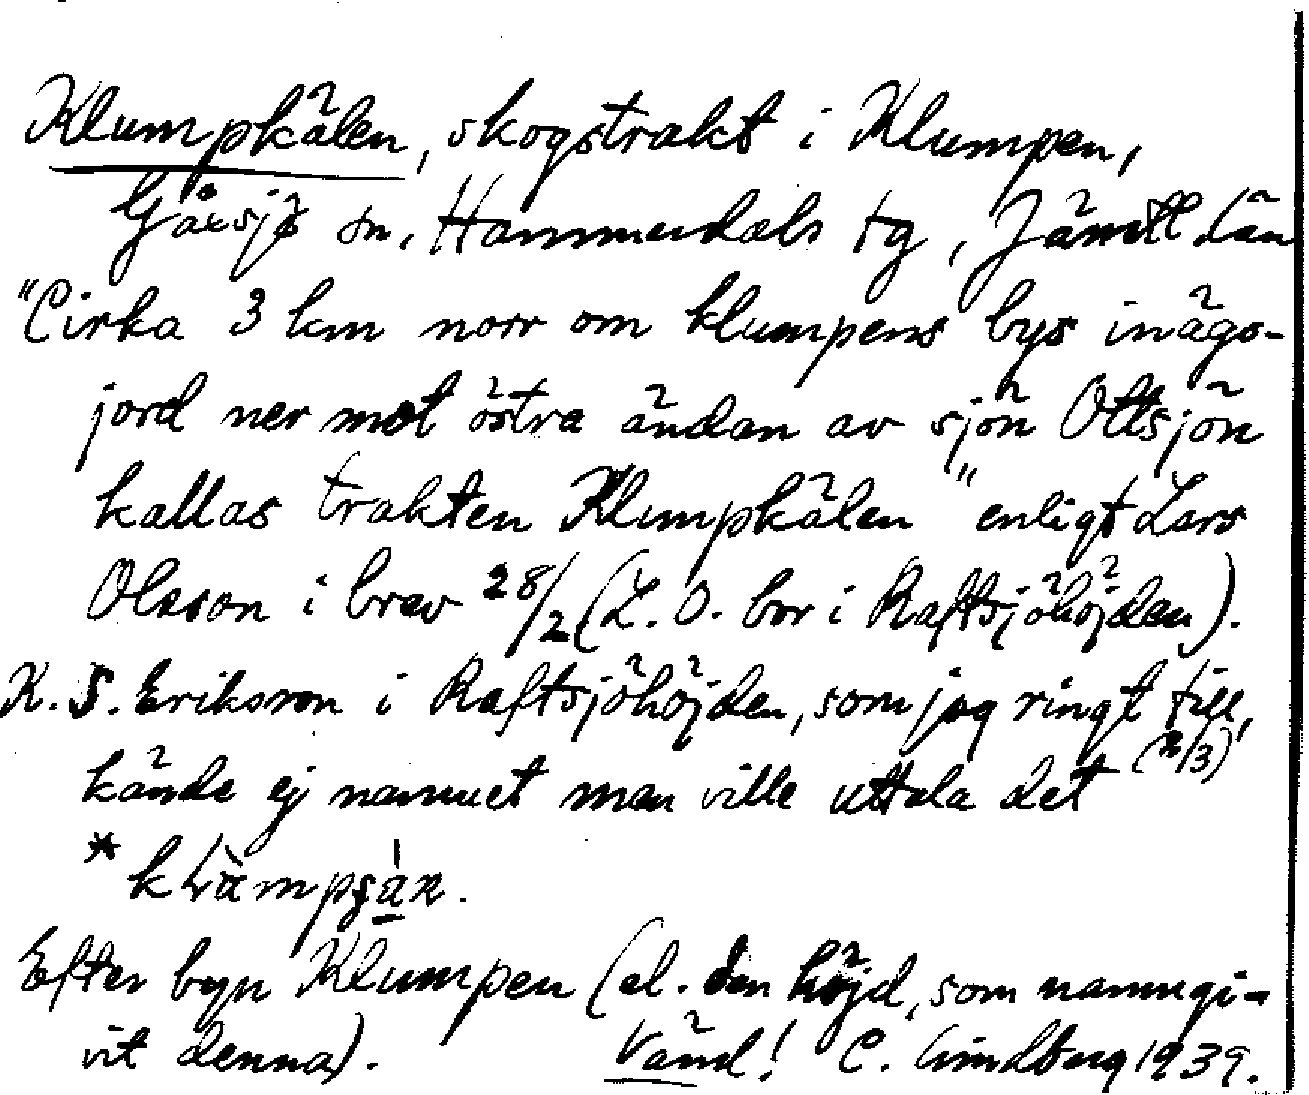 Klumpkälen, skogstrakt i Klumpen,
Gåxsjö sn, Hammerdals tg, Jämtl. Län
"Cirka 3 km norr om Klumpens bys inägo-
jord ner mot östra ändan av sjön Ottsjön
kallas trakten Klumpkälen" enligt Lars
Olsson i brev 28/2 (L. O. bor i Raftsjöhöjden).
K. S. Erikson i Raftsjöhöjden, som jag ringt till,
kände ej namnet men ville uttala det (2/3)
Efter byn Klumpen (el. den höjd, som namngi-
vit denna). Vänd! C. Lindberg 1939.